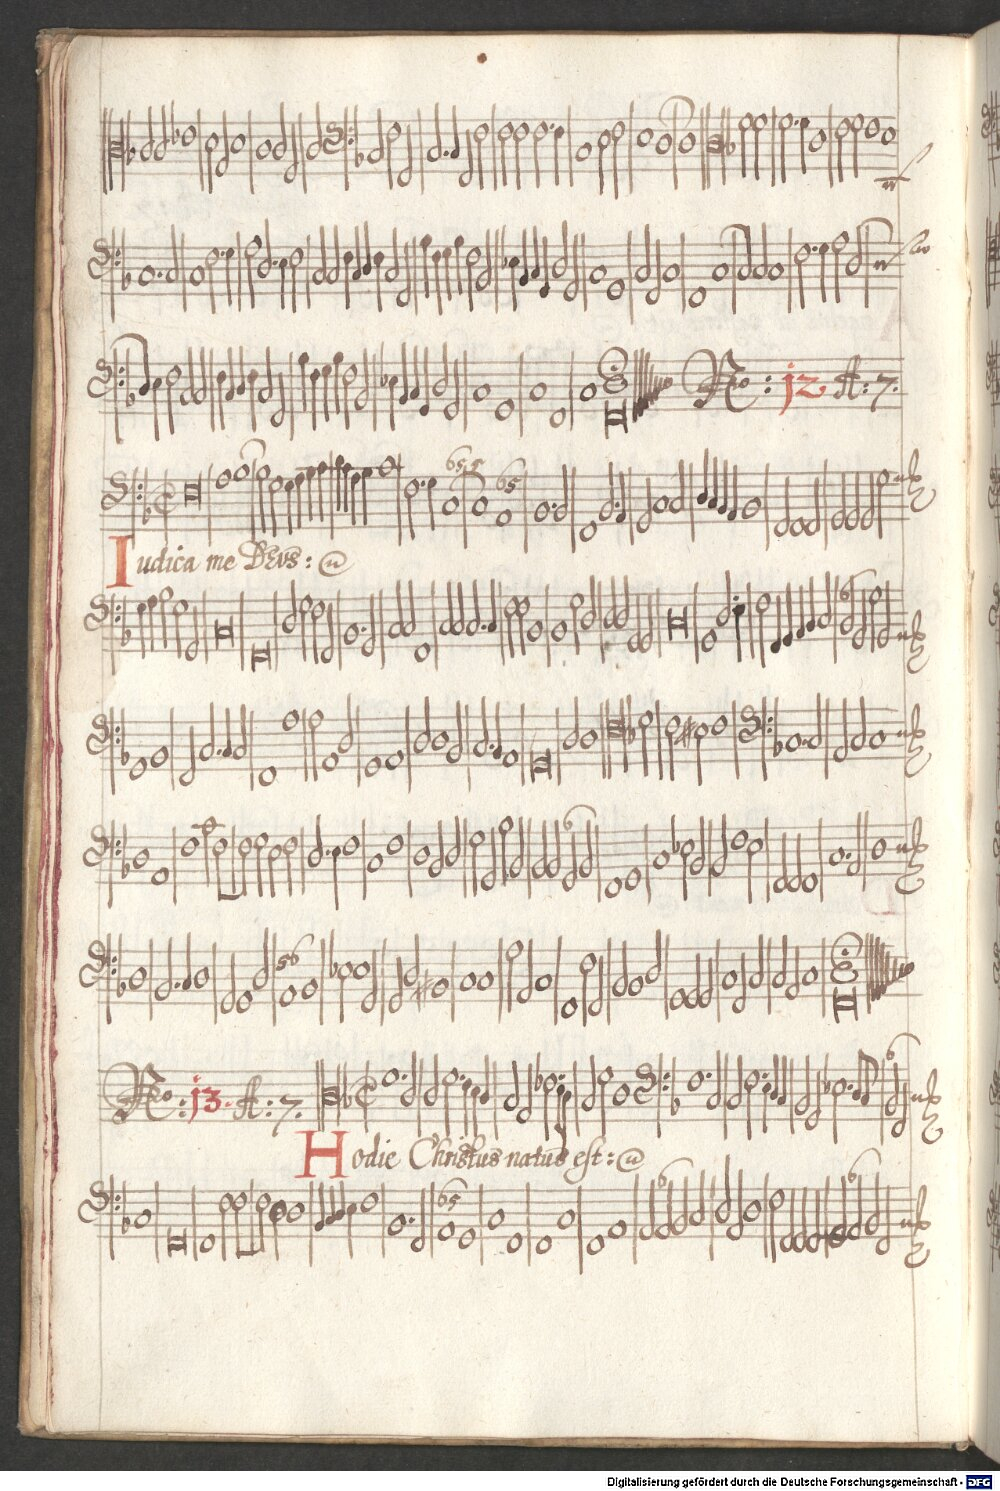 No: 12 A: 7.
65
65
Iudica me Deus:
6
6
56
No: 13. A: 7.
6
Hodie Christus natus est:
65
6
6
Digitalisierung gefördert durch die Deutsche Forschungsgemeinschaft - DFG